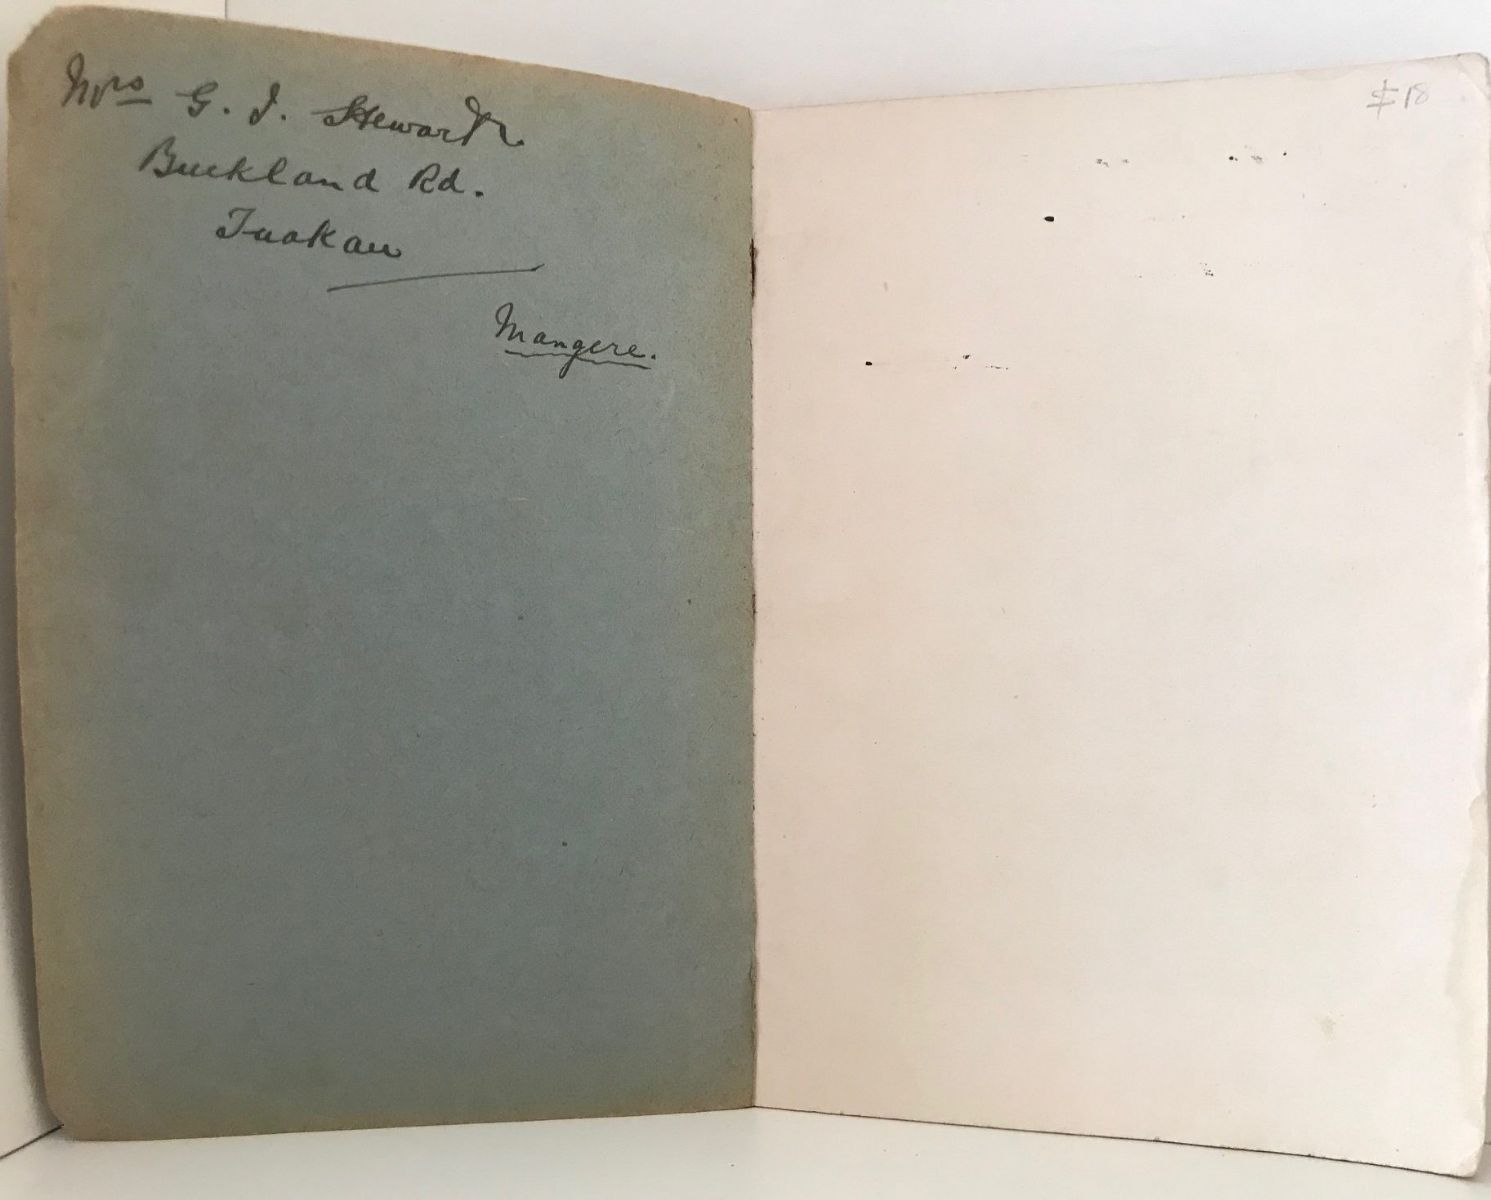 Mrs G. J. Stewart.
Buckland Rd.
Tuakau
Mangere.
$18